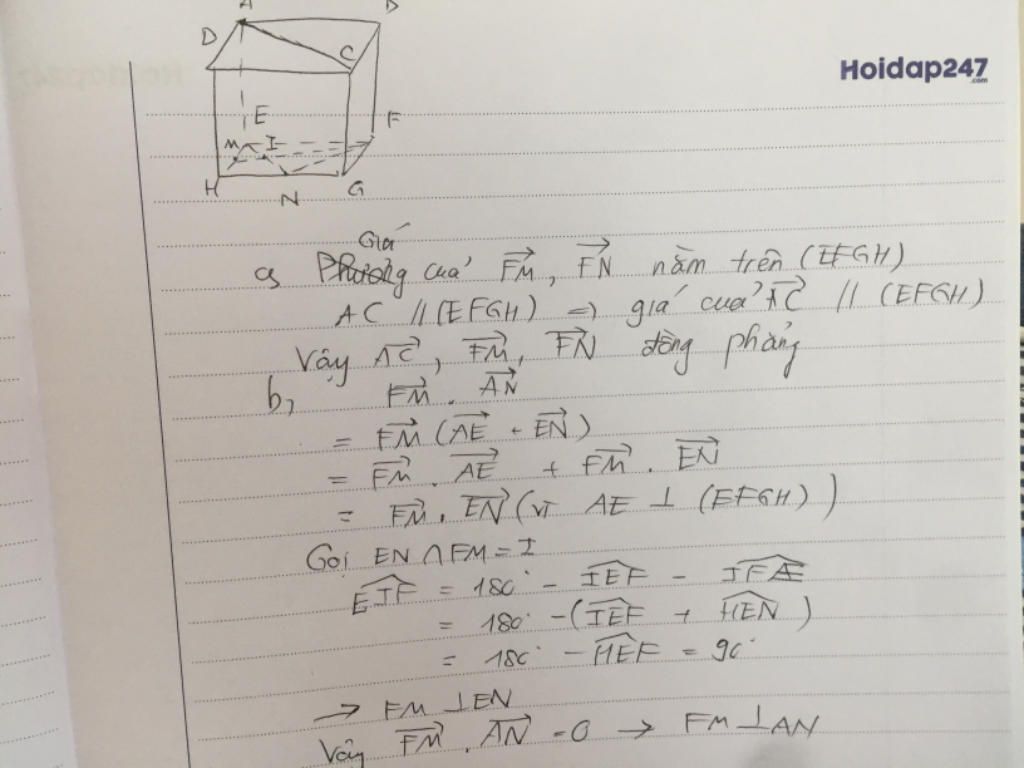 A B
D C
Hoidap247
.com
E F
M I
H N G
Giá
a, Phương của FM, FN nằm trên (EFGH)
AC // (EFGH) => giá của AC // (EFGH)
Vậy AC, FM, FN đồng phẳng
b, FM . AN
= FM (AE + EN)
= FM . AE + FM . EN
= FM . EN (vì AE ⊥ (EFGH))
Gọi EN ∩ FM = I
EIF = 180° - IEF - IFE
= 180° - (IEF + HEN)
= 180° - HEF = 90°
→ FM ⊥ EN
Vậy FM . AN = 0 → FM ⊥ AN